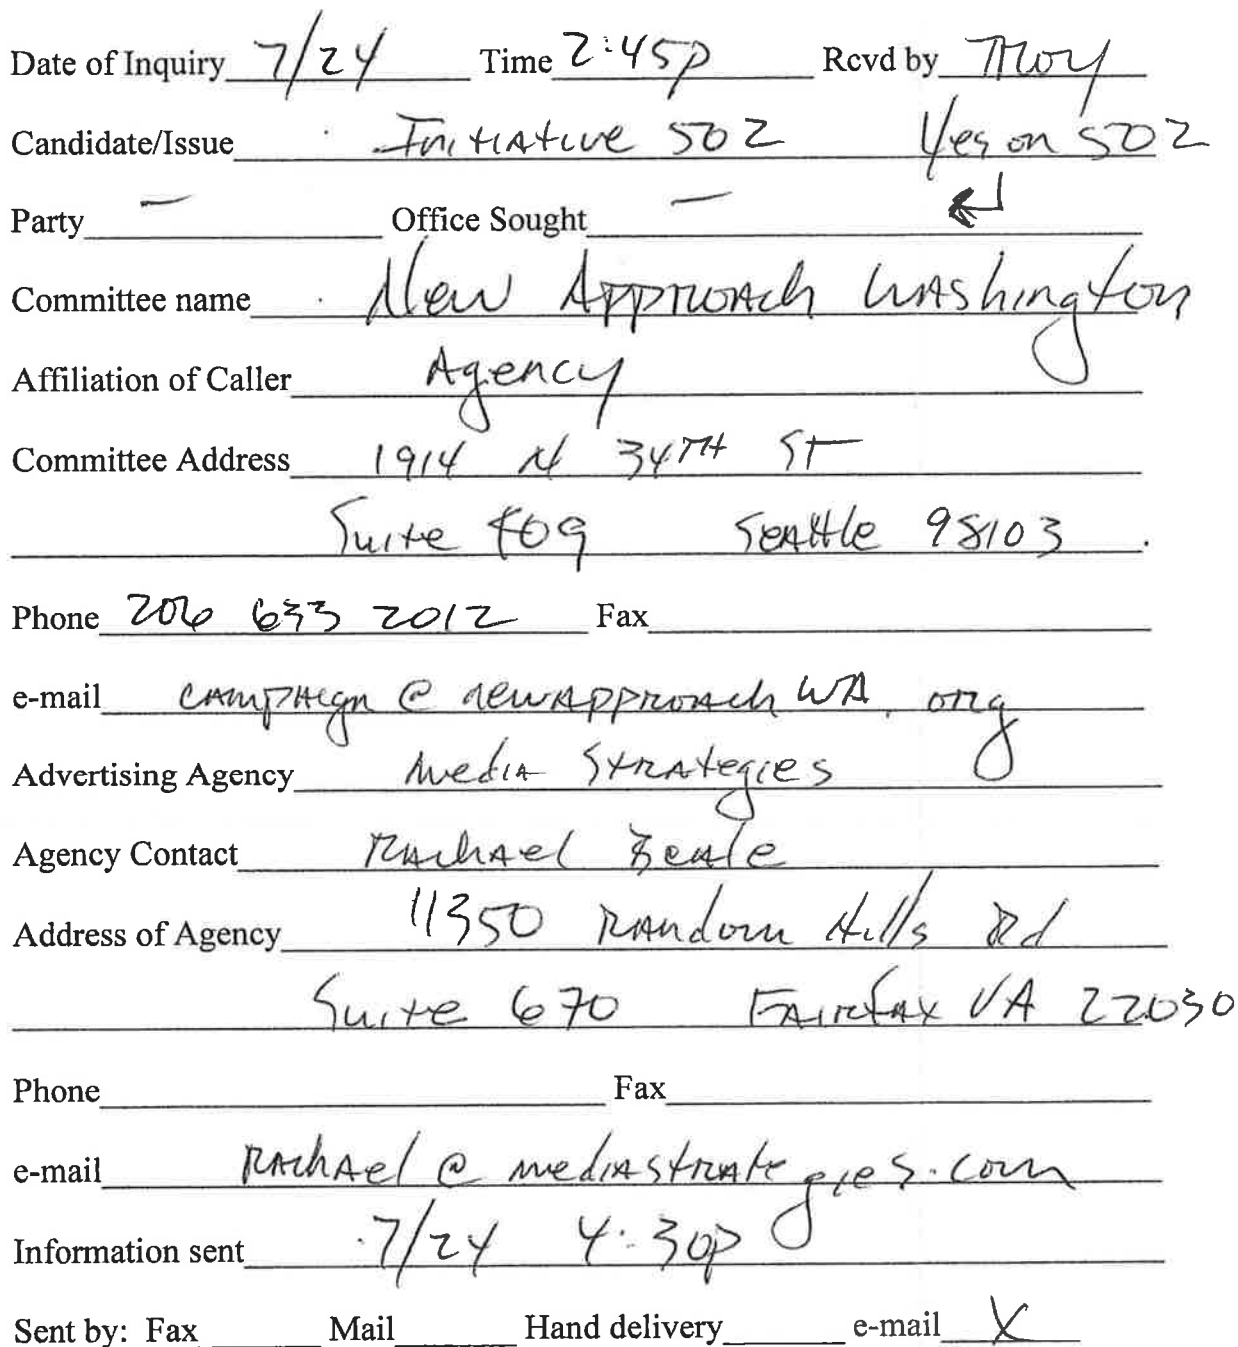 Date of Inquiry 7/24 Time 2:45p Rcvd by Troy
Candidate/Issue Initiative 502 Yes on 502
Party — Office Sought —
Committee name New Approach Washington
Affiliation of Caller Agency
Committee Address 1914 N 34TH ST
Suite 409 Seattle 98103
Phone 206 633 2012 Fax
e-mail campaign @ newapproach WA. org
Advertising Agency Media Strategies
Agency Contact Rachael Beale
Address of Agency 11350 Random Hills Rd
Suite 670 Fairfax VA 22030
Phone Fax
e-mail Rachael @ mediastrategies.com
Information sent 7/24 4:30p
Sent by: Fax Mail Hand delivery e-mail X